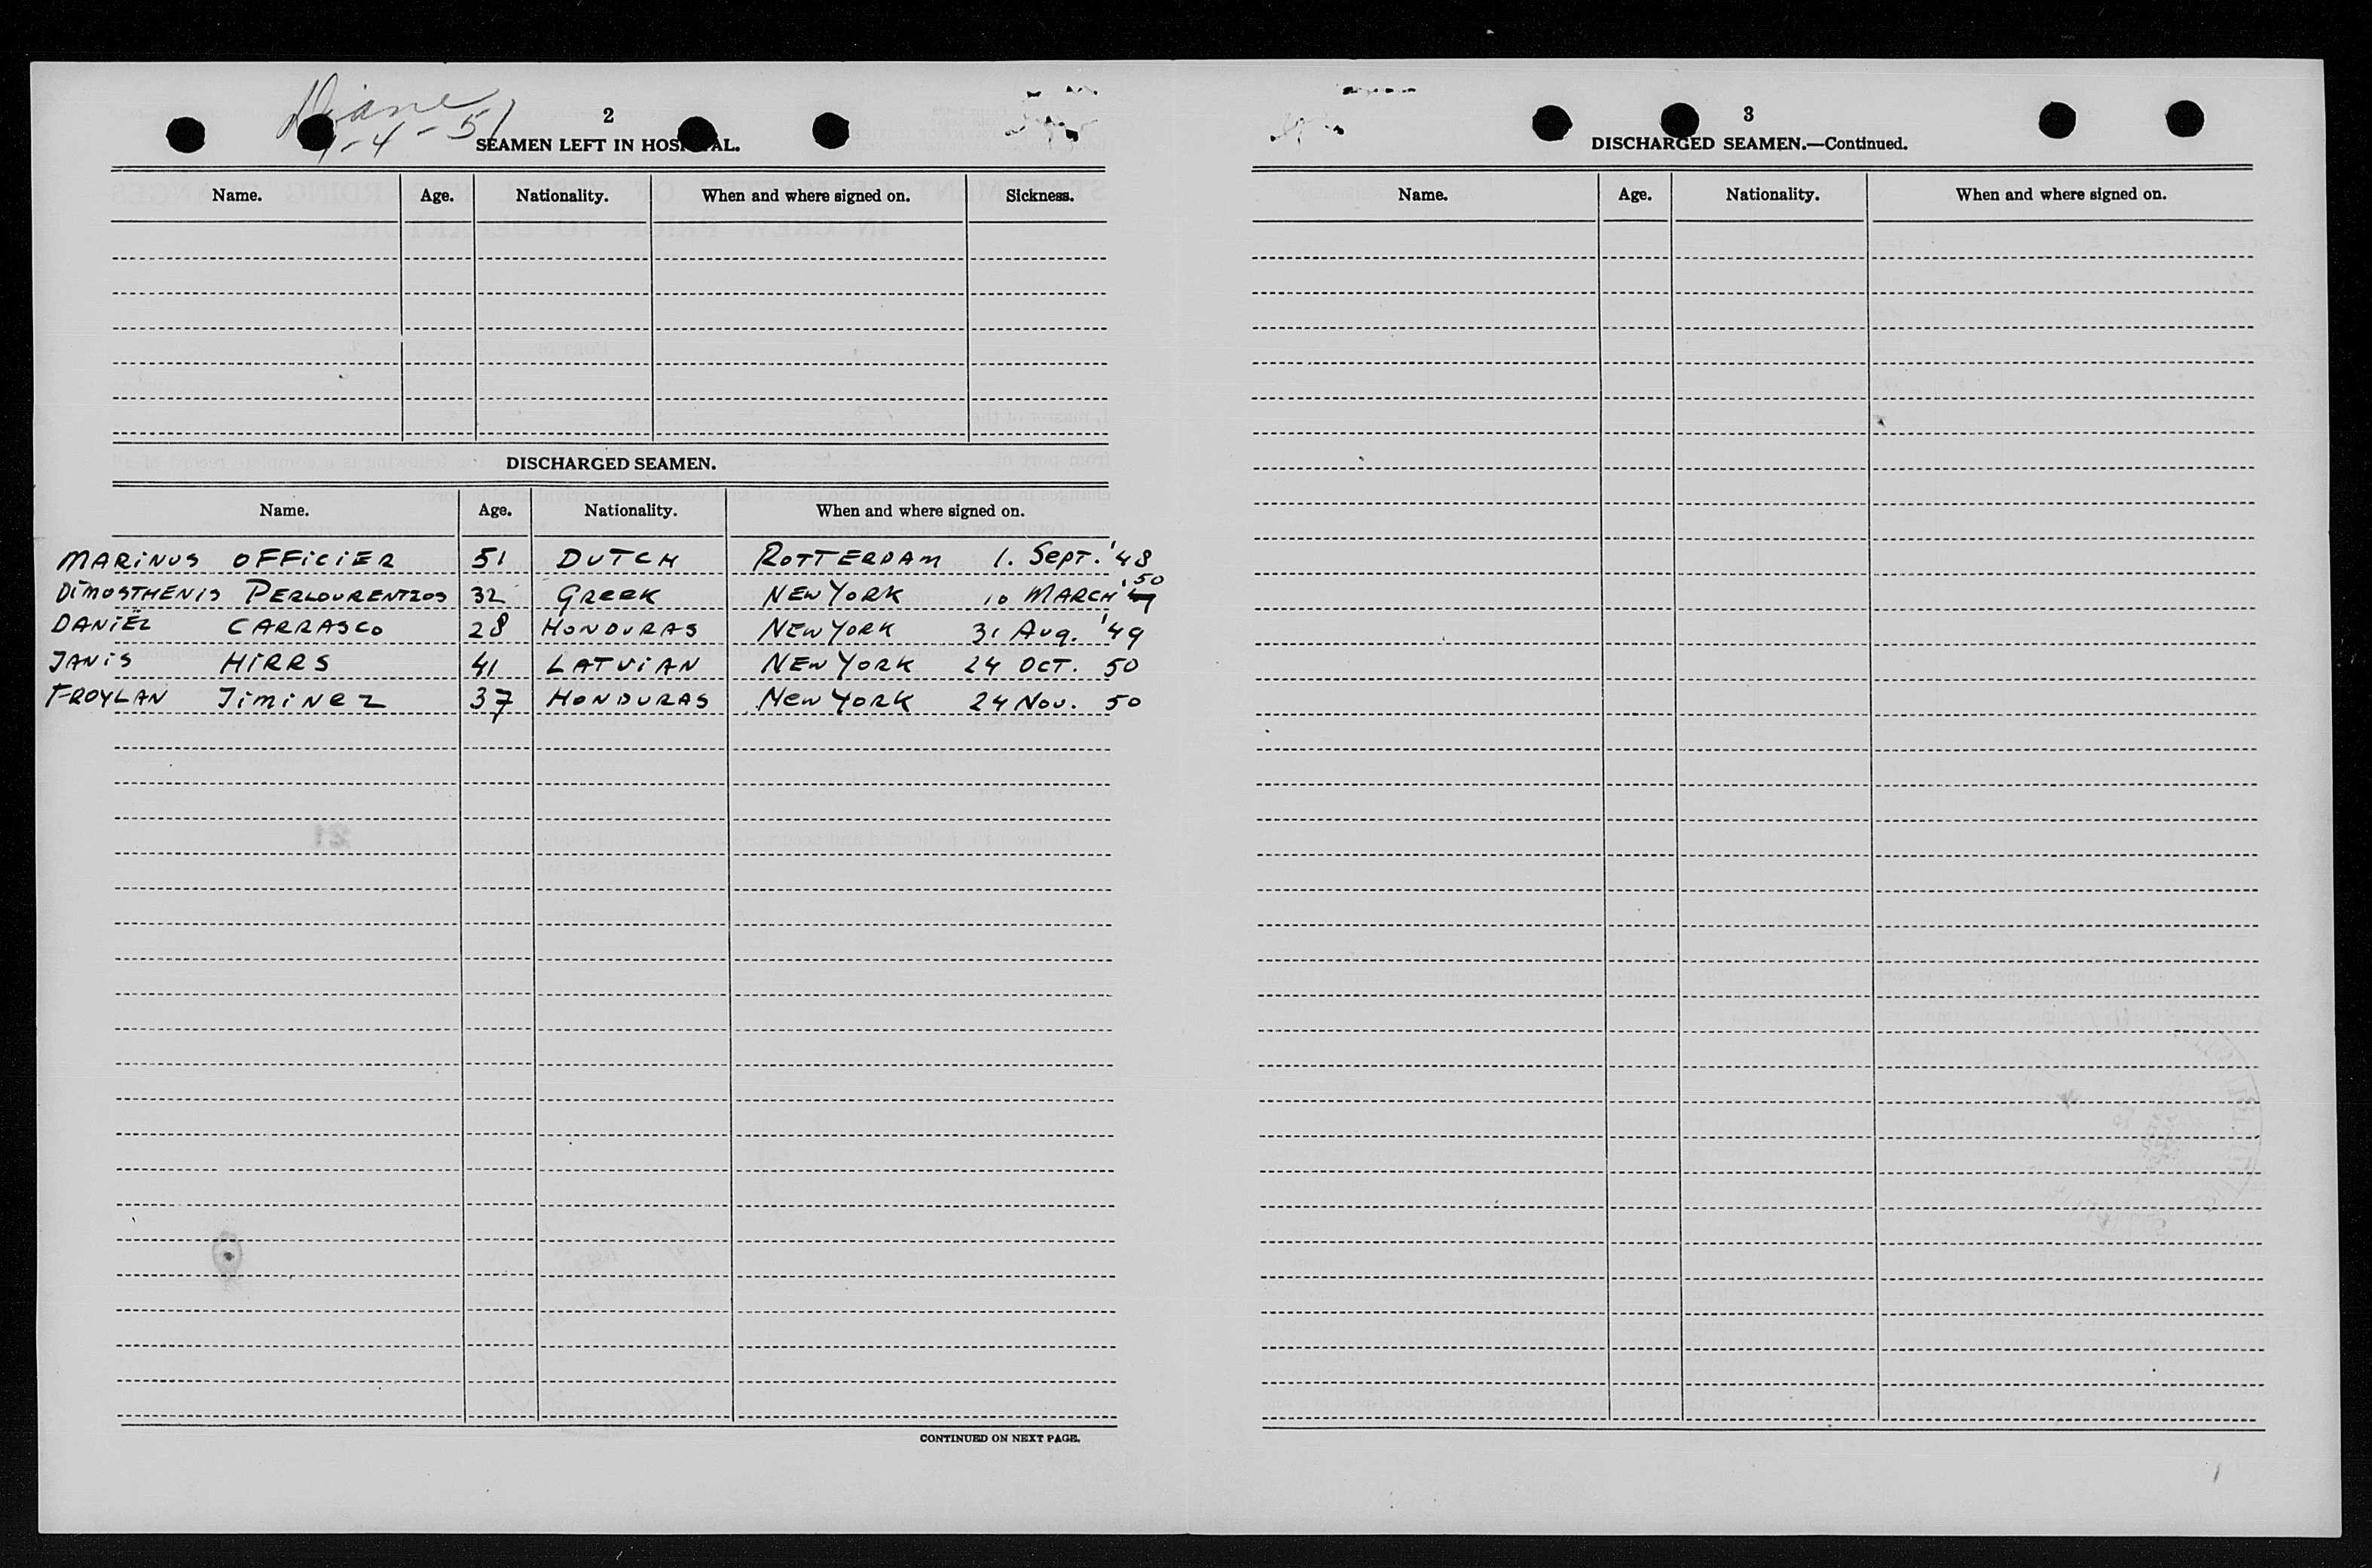 Diane
1-4-51
2
SEAMEN LEFT IN HOSPITAL.
Name. Age. Nationality. When and where signed on. Sickness.
DISCHARGED SEAMEN.
Name. Age. Nationality. When and where signed on.
MARINUS OFFICIER 51 DUTCH ROTTERDAM 1. SEPT. '48
DIMOSTHENIS PERLOURENTZOS 32 GREEK NEW YORK 10 MARCH '50
DANIËL CARRASCO 28 HONDURAS NEW YORK 31 AUG. '49
JANIS HIRRS 41 LATVIAN NEW YORK 24 OCT. 50
FROYLAN JIMINEZ 37 HONDURAS NEW YORK 24 NOV. 50
CONTINUED ON NEXT PAGE.
3
DISCHARGED SEAMEN.—Continued.
Name. Age. Nationality. When and where signed on.